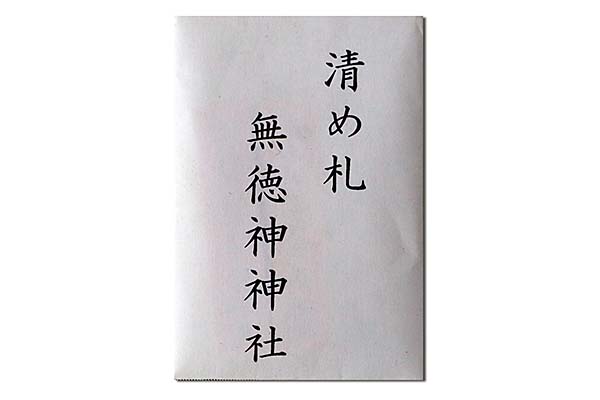 清め札
無徳神神社